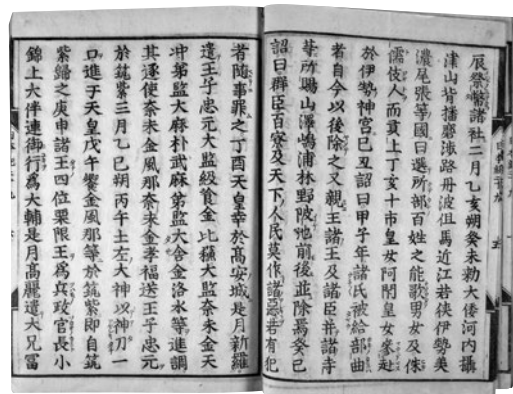 辰祭幣諸社二月乙亥朔癸未勅大倭河内攝
津山背播磨淡路丹波但馬近江若狹伊勢美
濃尾張等國曰選所部百姓之能歌男女及侏
儒伎人而貢上丁亥十市皇女阿閇皇女參赴
於伊勢神宮己丑詔曰甲子年諸氏被給部曲
者自今以後除之又親王諸王及諸臣并諸寺
等所賜山澤嶋浦林野陂池前後並除焉癸巳
詔曰群臣百寮及天下人民莫作諸惡若有犯
者随事罪之丁酉天皇幸於高安城是月新羅
遣王子忠元大監級飡金比蘓大監奈末金天
冲第監大麻朴武麻第監大舎金洛水等進調
其送使奈末金風那奈末金孝福送王子忠元
於筑紫三月乙巳朔丙午土左大神以神刀一
口進于天皇戊午饗金風那等於筑紫即自筑
紫歸之庚申諸王四位栗隈王為兵政官長小
錦上大伴連御行為大輔是月高麗遣大兄冨